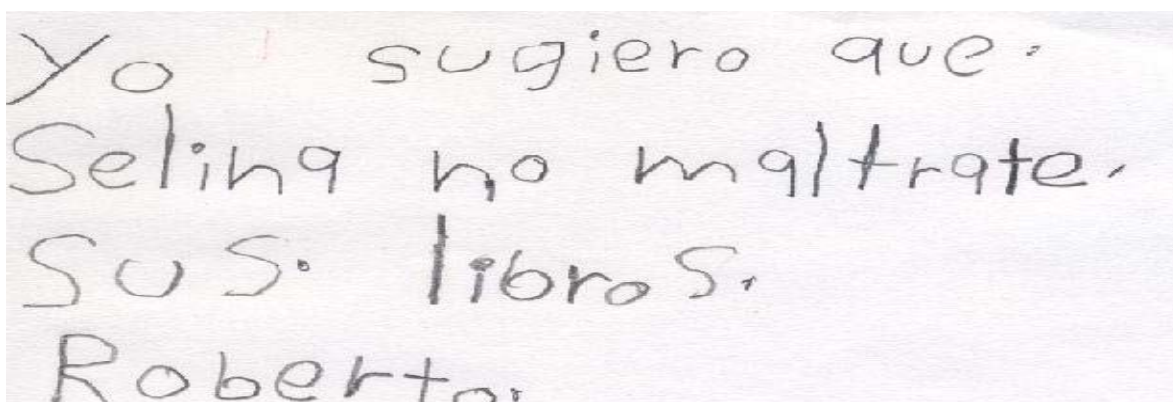 Yo sugiero que.
Selina no maltrate.
sus. libros.
Roberto.